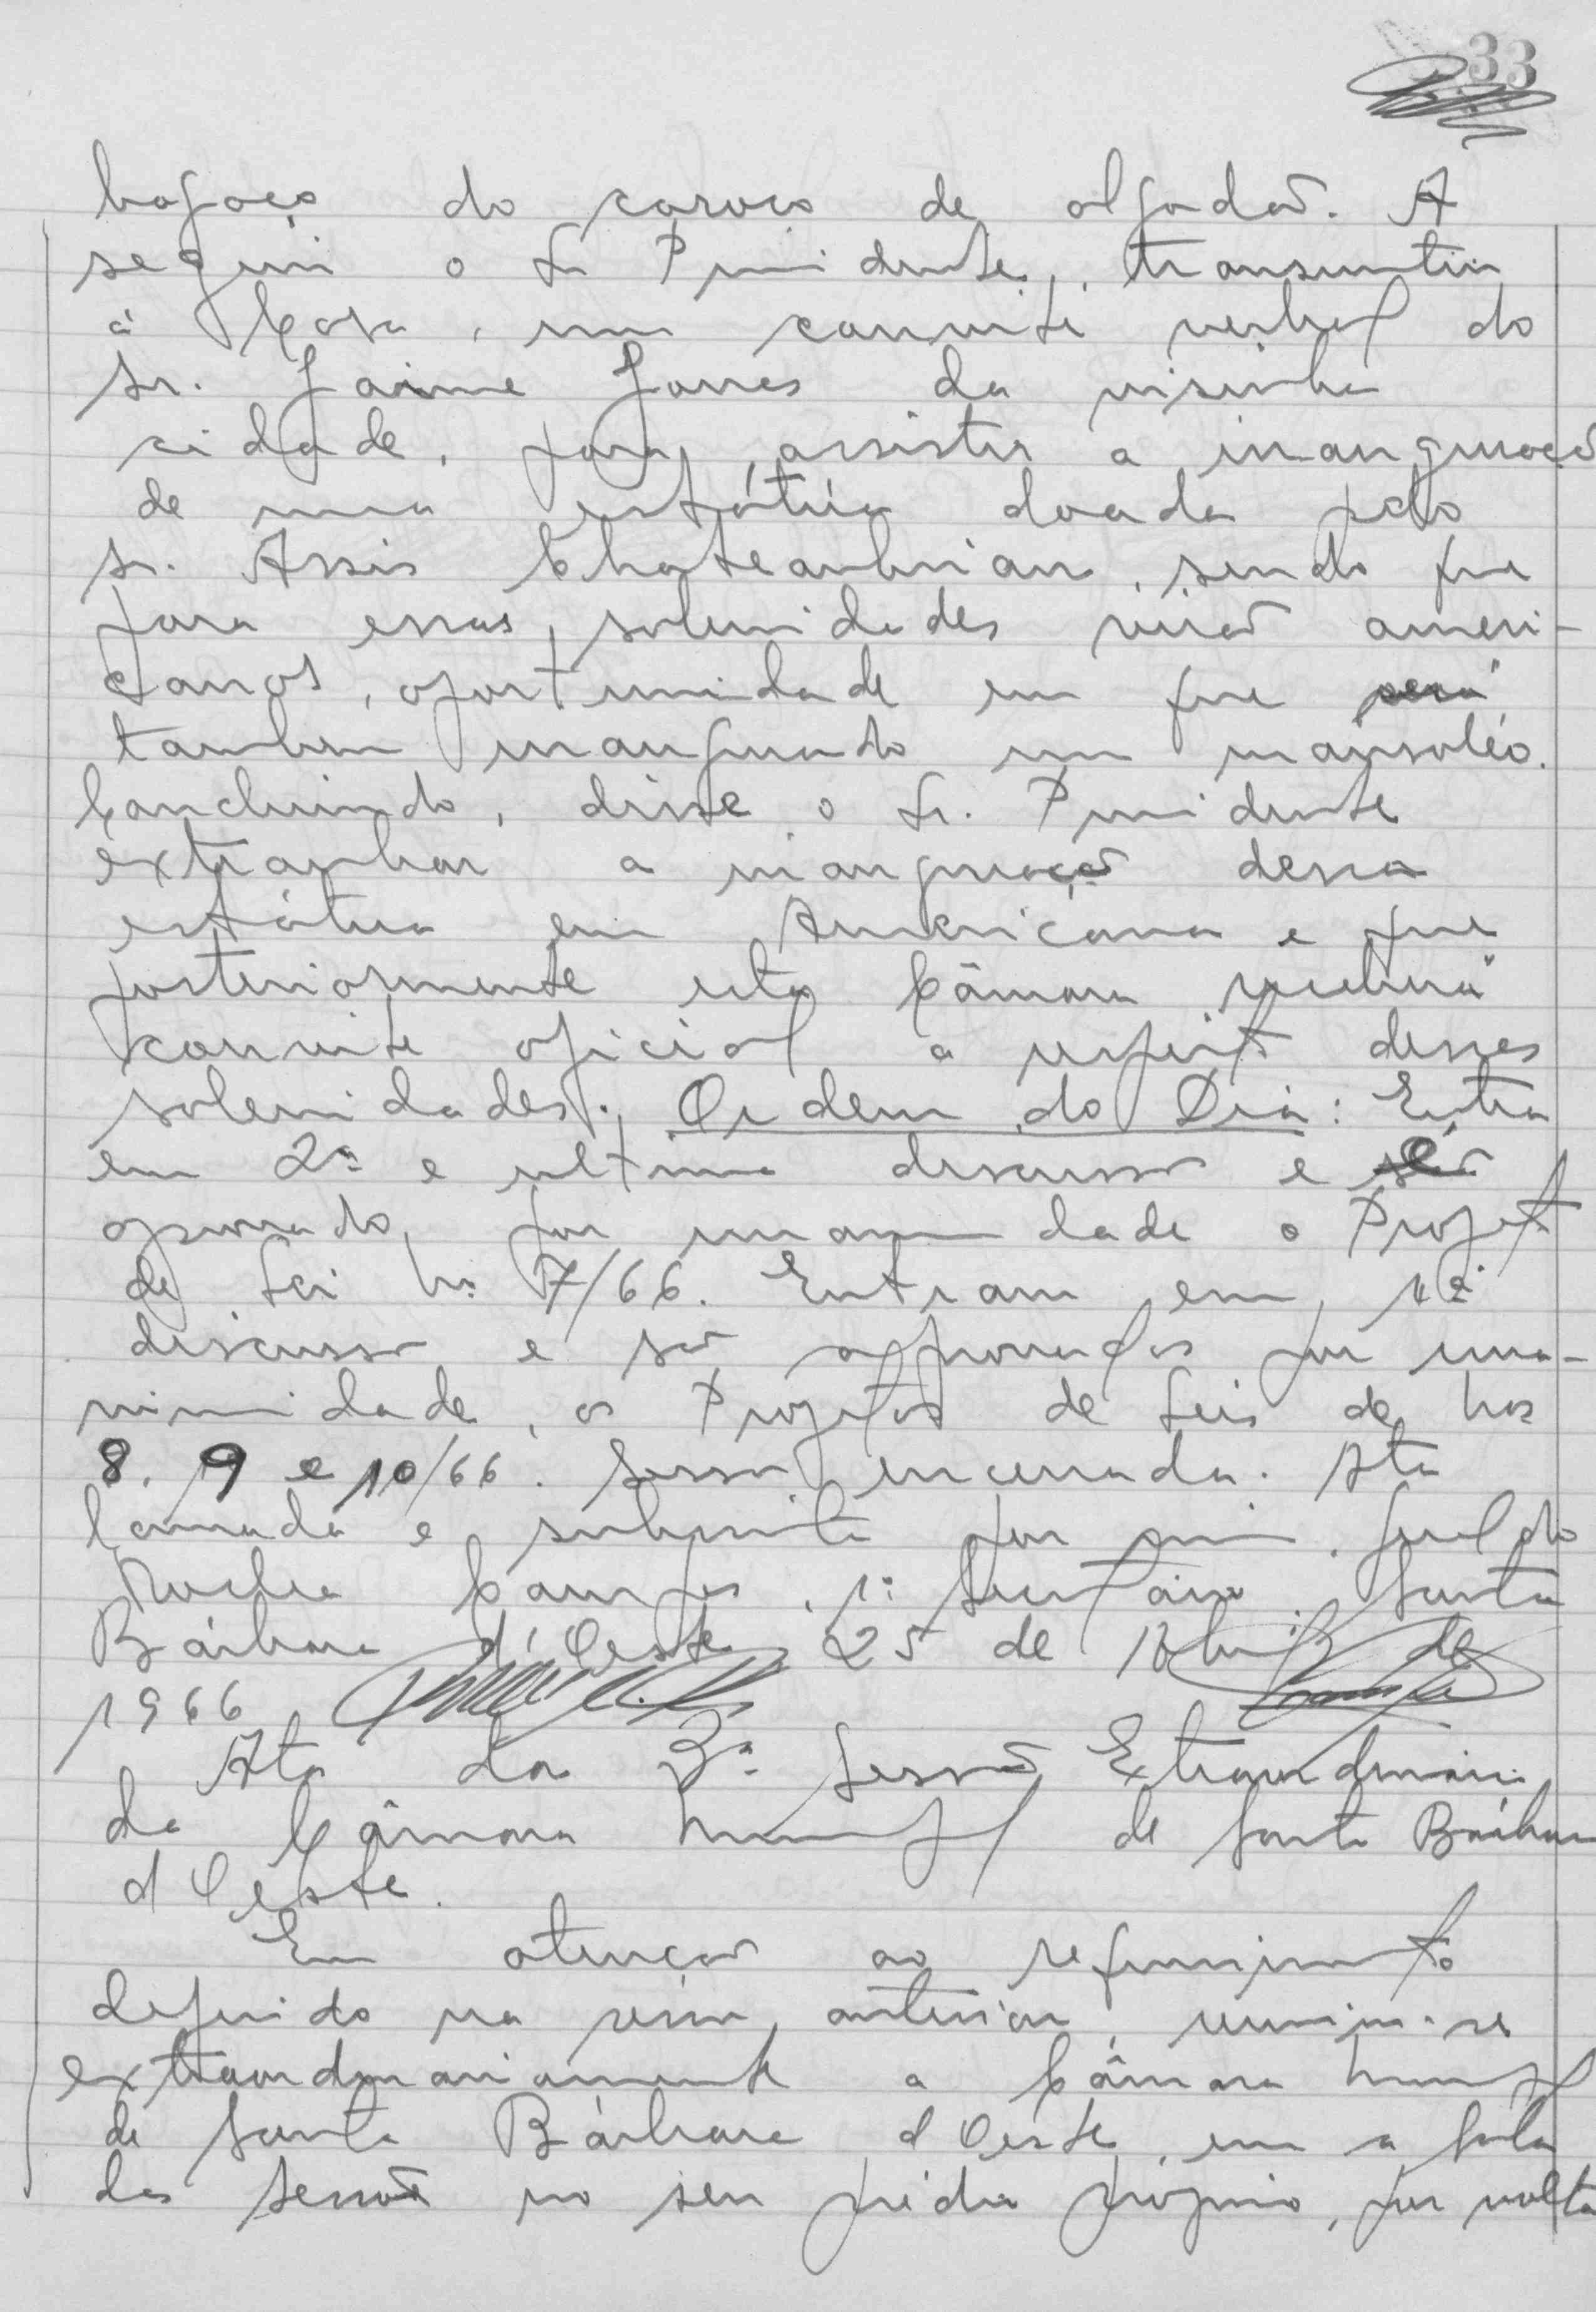 33
bagaço do caroço de algodão. A
seguir o Sr Presidente, transmitiu
à Casa, um convite verbal do
Sr. Jaime Jones da visinha
cidade, para assistir a inauguração
de uma estátua doada pelo
sr. Assis Chateaubrian, sendo que
para essas solenidades virão ameri-
canos, oportunidade em que será
tambem inaugurado um mausoléo.
Concluindo, disse o Sr. Presidente
extranhar a inauguração dessa
estátua em Americana e que
posteriormente esta Câmara receberá
convite oficial a respeito desses
solenidades. Ordem do Dia: Entra
em 2ª e ultima discussão e é
aprovado por unanimidade o Projeto
de Lei nº 7/66. Entram em 1ª
discussão e são aprovados por una-
nimidade, os Projetos de Leis de nos
8, 9 e 10/66. Sessão encerrada. Ata
lavrada e subscrita por mim,
Rocha Campos, 1º Secretário. Santa
Bárbara d'Oeste 25 de Abril de
1966
Ata da 3ª Sessão Extraordinária
da Câmara Municipal de Santa Bárbara
d Oeste.
Em atenção ao requerimento
deferido na sessão anterior, reuniu-se
extraordinariamente a Câmara Municipal
de Santa Bárbara d Oeste, em a sala
das sessões no seu prédio proprio, por volta